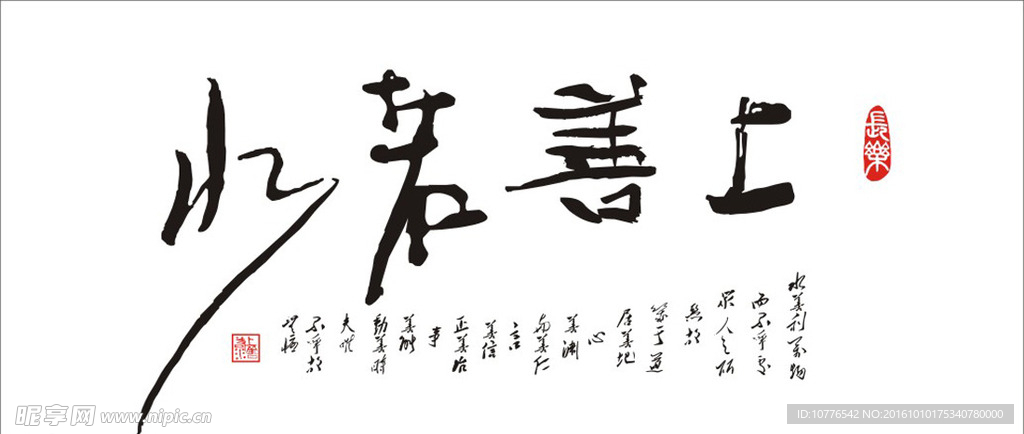 上善若水
長樂
水善利萬物
而不爭處
眾人之所
惡故
幾于道
居善地
心
善淵
與善仁
言
善信
正善治
事
善能
動善時
夫唯
不爭故
昵享网 www.nipic.cn
ID:10776542 NO:20161010175340780000